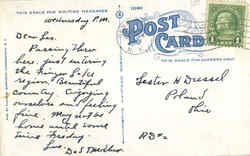 THIS SPACE FOR WRITING MESSAGES
Wednesday P.M.
Dear Les.
Passing thru
here, just entering
the Finger Lake
region. Beautiful
country. Enjoying
ourselves and feeling
fine. May not be
home until some
time Friday.
POST CARD
THIS SPACE FOR ADDRESS ONLY
Lester H Dressel
Poland
Ohio
RD